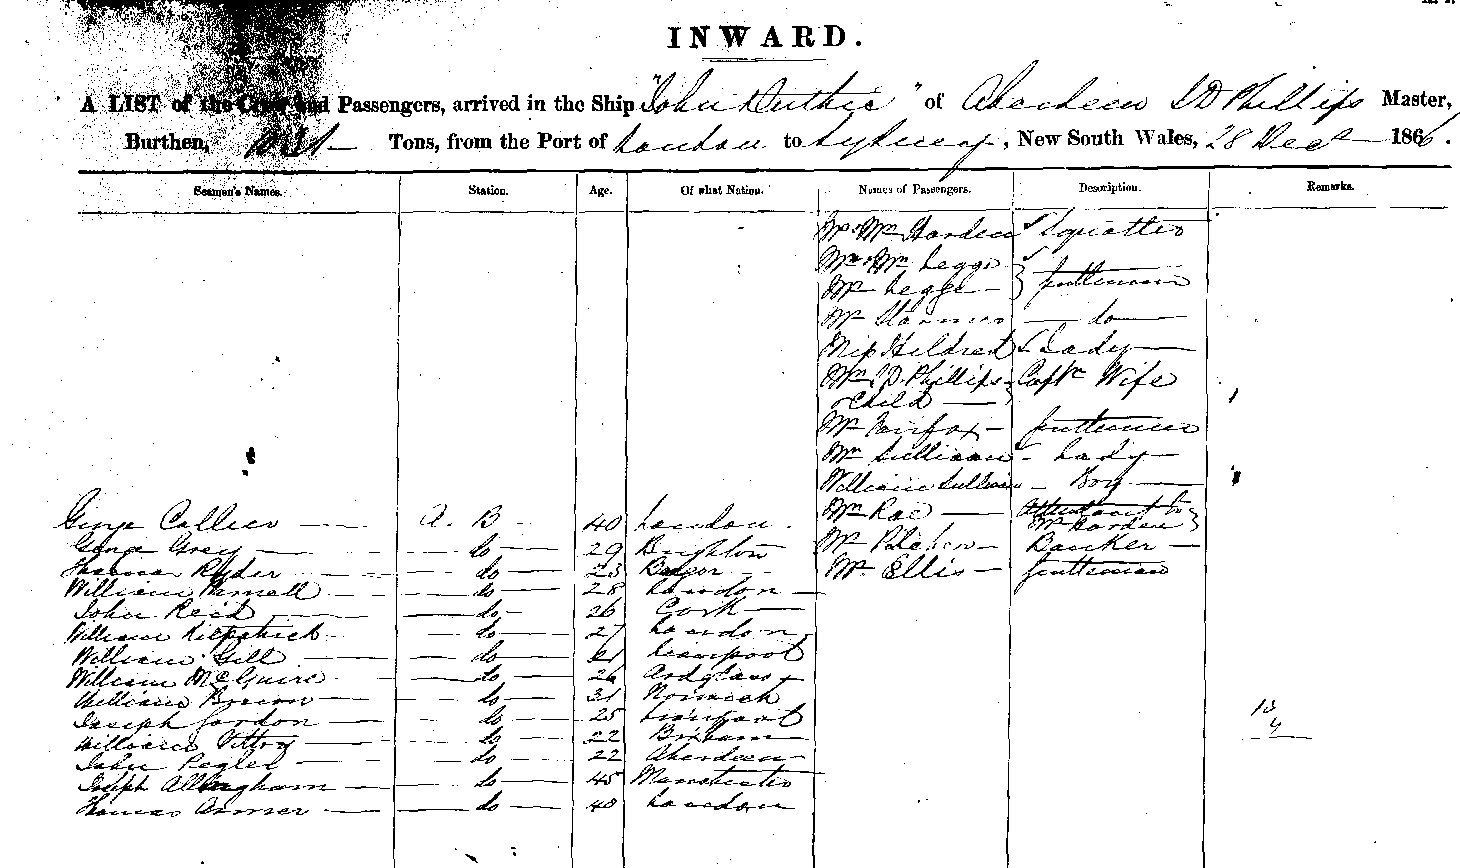 INWARD.
A LIST of the Crew and Passengers, arrived in the Ship "John Duthie" of Aberdeen I D Phillips Master,
Burthen, Tons, from the Port of London to Sydney, New South Wales, 28 Decr 1866.
Seamen's Names. Station. Age. Of what Nation. Names of Passengers. Description. Remarks.
Mr & Mrs Harden Squatter
Mr & Mrs Legge
Mr Legge gentlemen
Mr do
Miss Hildred Lady
Mrs I D. Phillips Captn Wife
& Child
Mr Fairfax gentleman
Mrs Sullivan Lady
William Sullivan Boy
George Collier A. B 40 London Mrs Rae Attendant to
Mrs Harden
George Grey do 29 Brighton Mr Banker
Thomas Ryder do 23 Mr Ellis gentleman
William Parnell do 28 London
John Reid do 26 Cork
William Kilpatrick do 27 London
William Gill do Liverpool
William McGuire do 26 Ardglass
William Brown do 31 Norwich
Joseph Gordon do 25 Liverpool 13
William Vittery do 22 Brixham 4
John Pegler do 22 Aberdeen
Joseph Allingham do 45 Manchester
Thomas Armer do 40 London